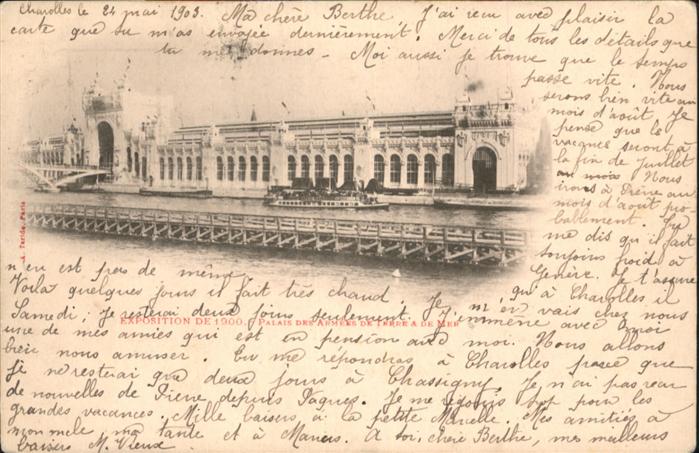 Charolles le 24 mai 1903. Ma chère Berthe, J'ai reçu avec plaisir la
carte que tu m'as envoyée dernièrement. Merci de tous les détails que
tu me donnes - Moi aussi je trouve que le temps
passe vite. Nous
serons bien vite au
mois d'août. Je
pense que les
vacances seront à
la fin de juillet
au moins. Nous
irons à
mois d'août pro
bablement. Tu
me dis qu'il fait
toujours froid à
Genève. Je t'assure
qu'à Charolles il
n'en est pas de même
Voilà quelques jours il fait très chaud. Je m'en vais chez nous
Samedi; Je resterai deux jours seulement. J'emmène avec moi
une de mes amies qui est en pension avec moi. Nous allons
bien nous amuser. Tu me répondras à Charolles parce que
je ne resterai que deux jours à Chassigny. Je n'ai pas reçu
de nouvelles de Pierre depuis Pâques. Je me réjouis pour les
grandes vacances. Mille baisers à la petite Marcelle. Mes amitiés à
ma tante et à A toi, chère Berthe, mes meilleurs
baisers M. Vieux
A. Taride, Paris
EXPOSITION DE 1900. - PALAIS DES ARMÉES DE TERRE & DE MER